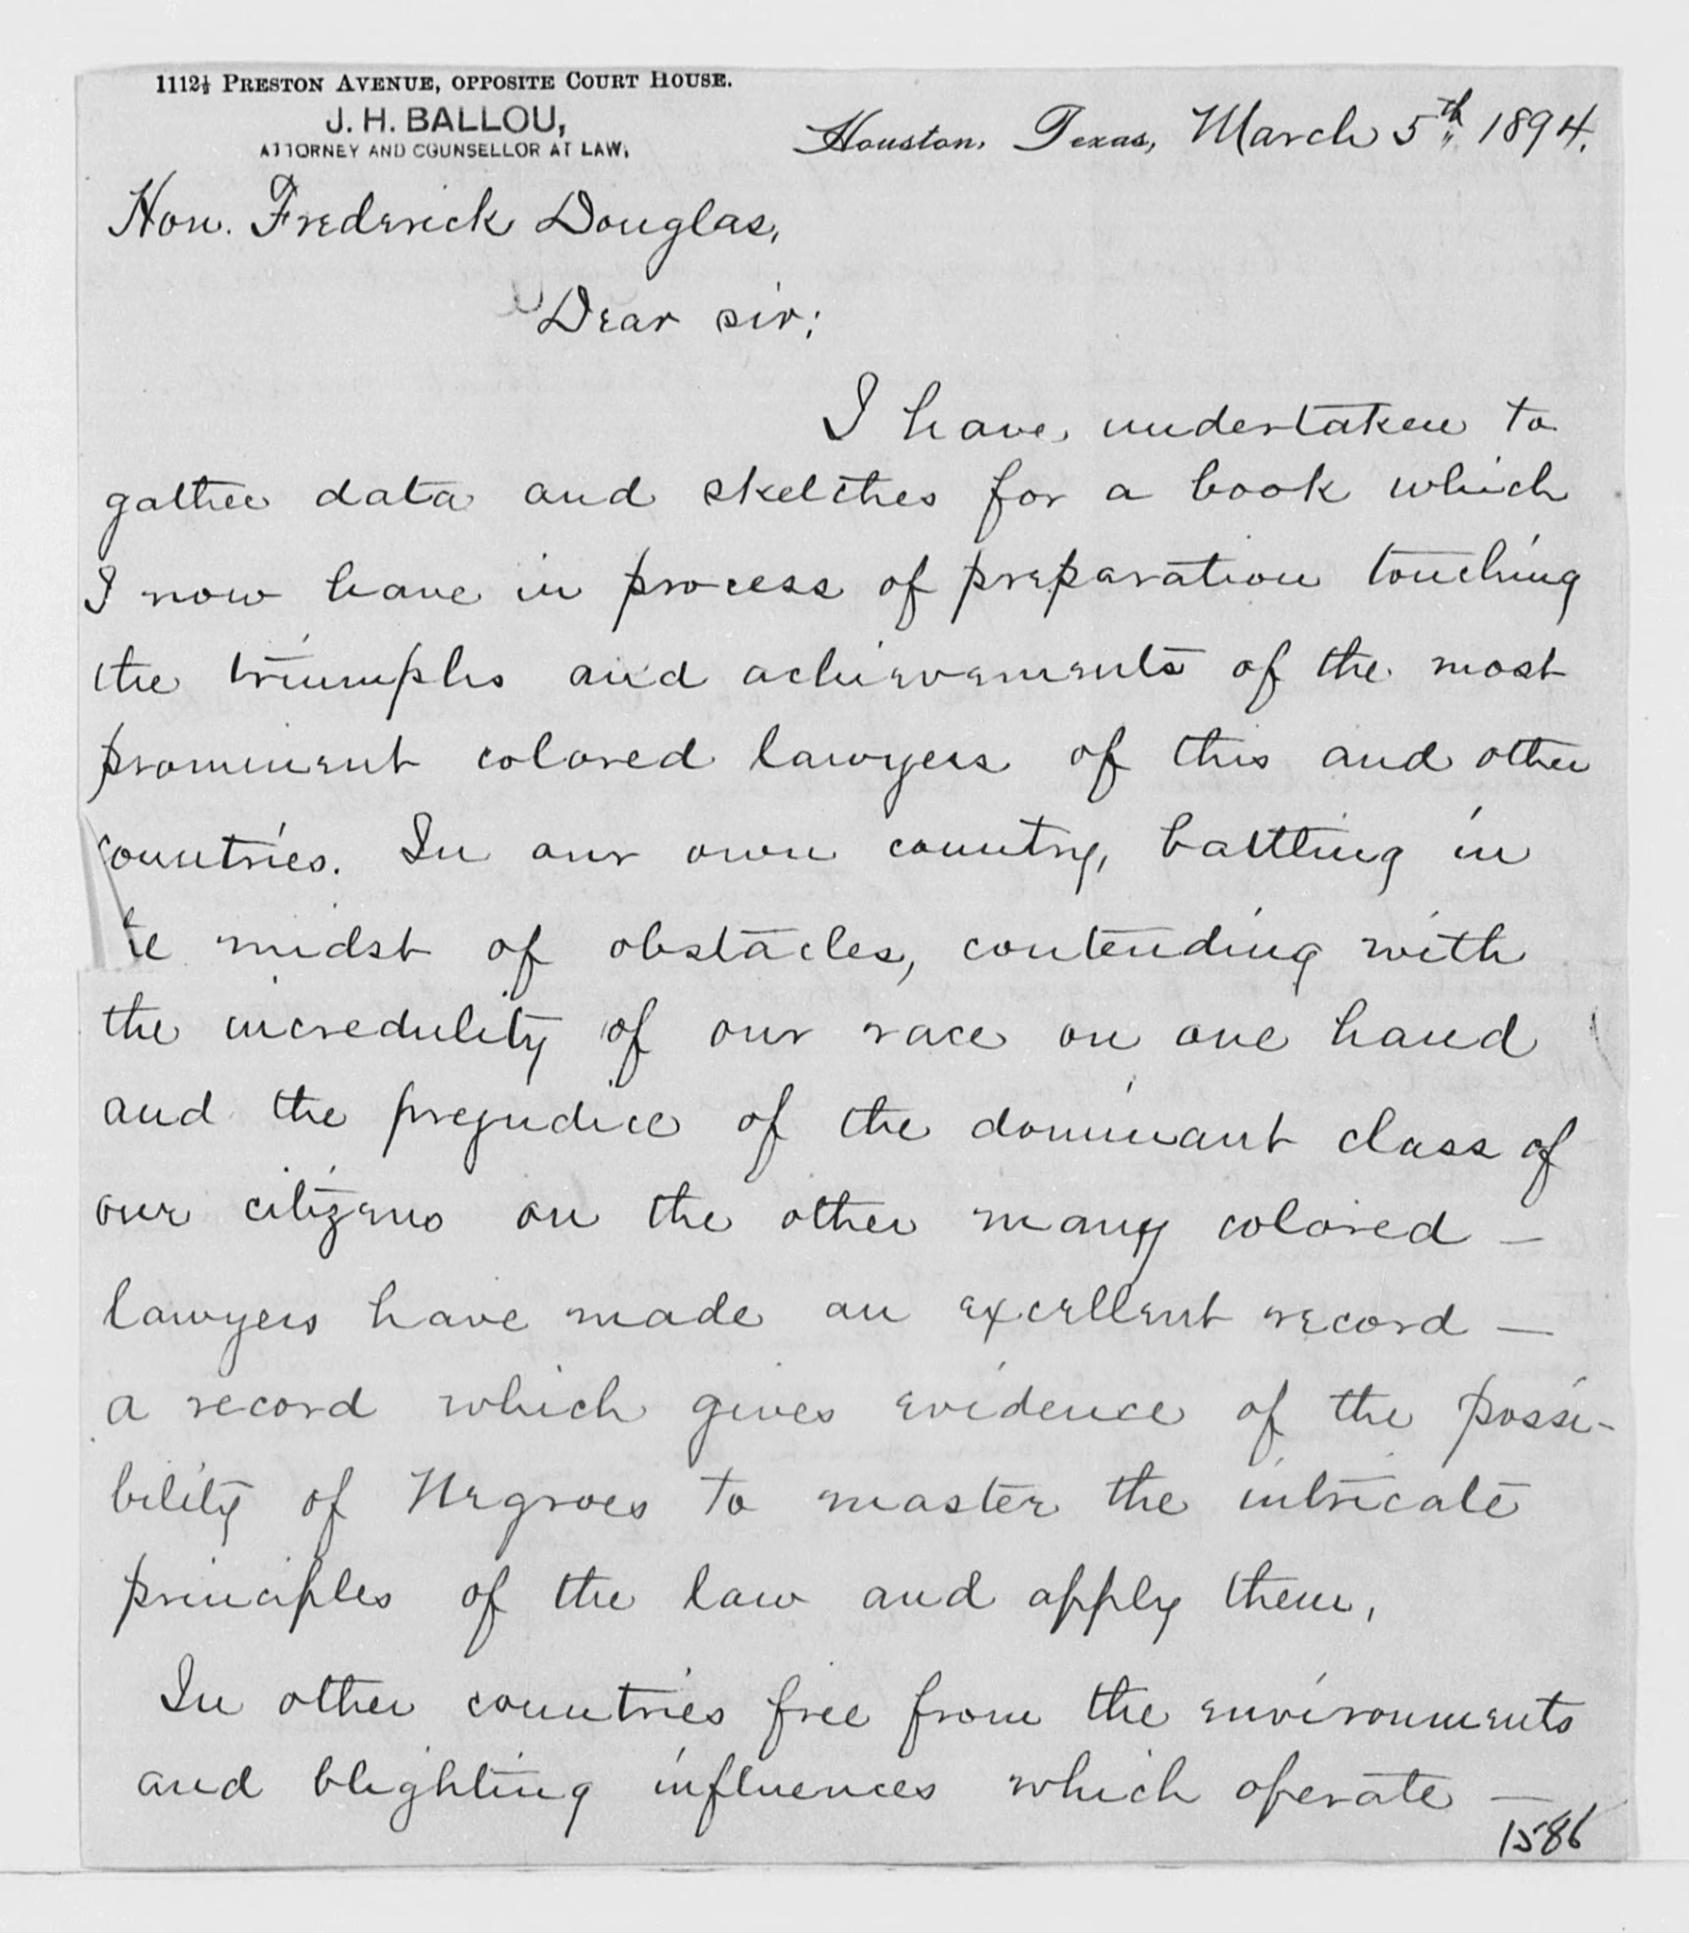 1112½ Preston Avenue, opposite Court House.
J. H. BALLOU,
ATTORNEY AND COUNSELLOR AT LAW,
Houston, Texas, March 5th 1894.
Hon. Frederick Douglas,
Dear sir;
I have undertaken to
gather data and sketches for a book which
I now have in process of preparation touching
the triumphs and achievements of the most
prominent colored lawyers of this and other
countries. In our own country, battling in
te midst of obstacles, contending with
the incredulity of our race on one hand
and the prejudice of the dominant class of
our citizens on the other many colored —
lawyers have made an excellent record —
a record which gives evidence of the possi-
bility of Negroes to master the intricate
principles of the law and apply them.
In other countries free from the environments
and blighting influences which operate —
1586